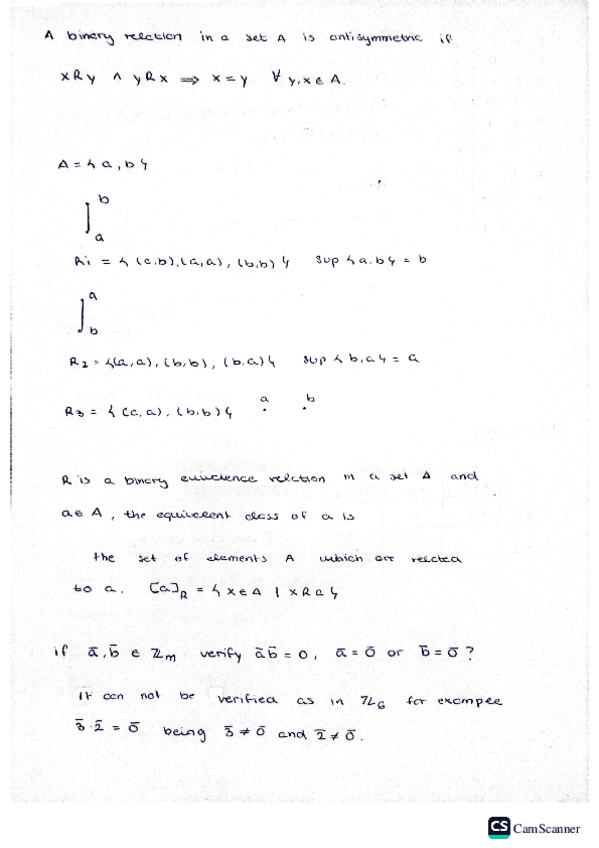 A binary relation in a set A is antisymmetric if
xRy ∧ yRx ⟹ x=y ∀ y,x ∈ A.
A = {a, b}
b
a
R1 = {(a,b), (a,a), (b,b)} sup {a.b} = b
a
b
R2 = {(a,a), (b,b), (b.a)} sup {b,a} = a
R3 = {(a,a), (b.b)} a b
R is a binary equivalence relation in a set A and
a∈A, the equivalent class of a is
the set of elements A which are related
to a. [a]R = {x∈A | xRa}
if ā, b̄ ∈ ℤm verify āb̄ = 0, ā = 0̄ or b̄ = 0̄?
It can not be verified as in ℤ6 for example
3̄·2̄ = 0̄ being 3̄ ≠ 0̄ and 2̄ ≠ 0̄.
CS CamScanner